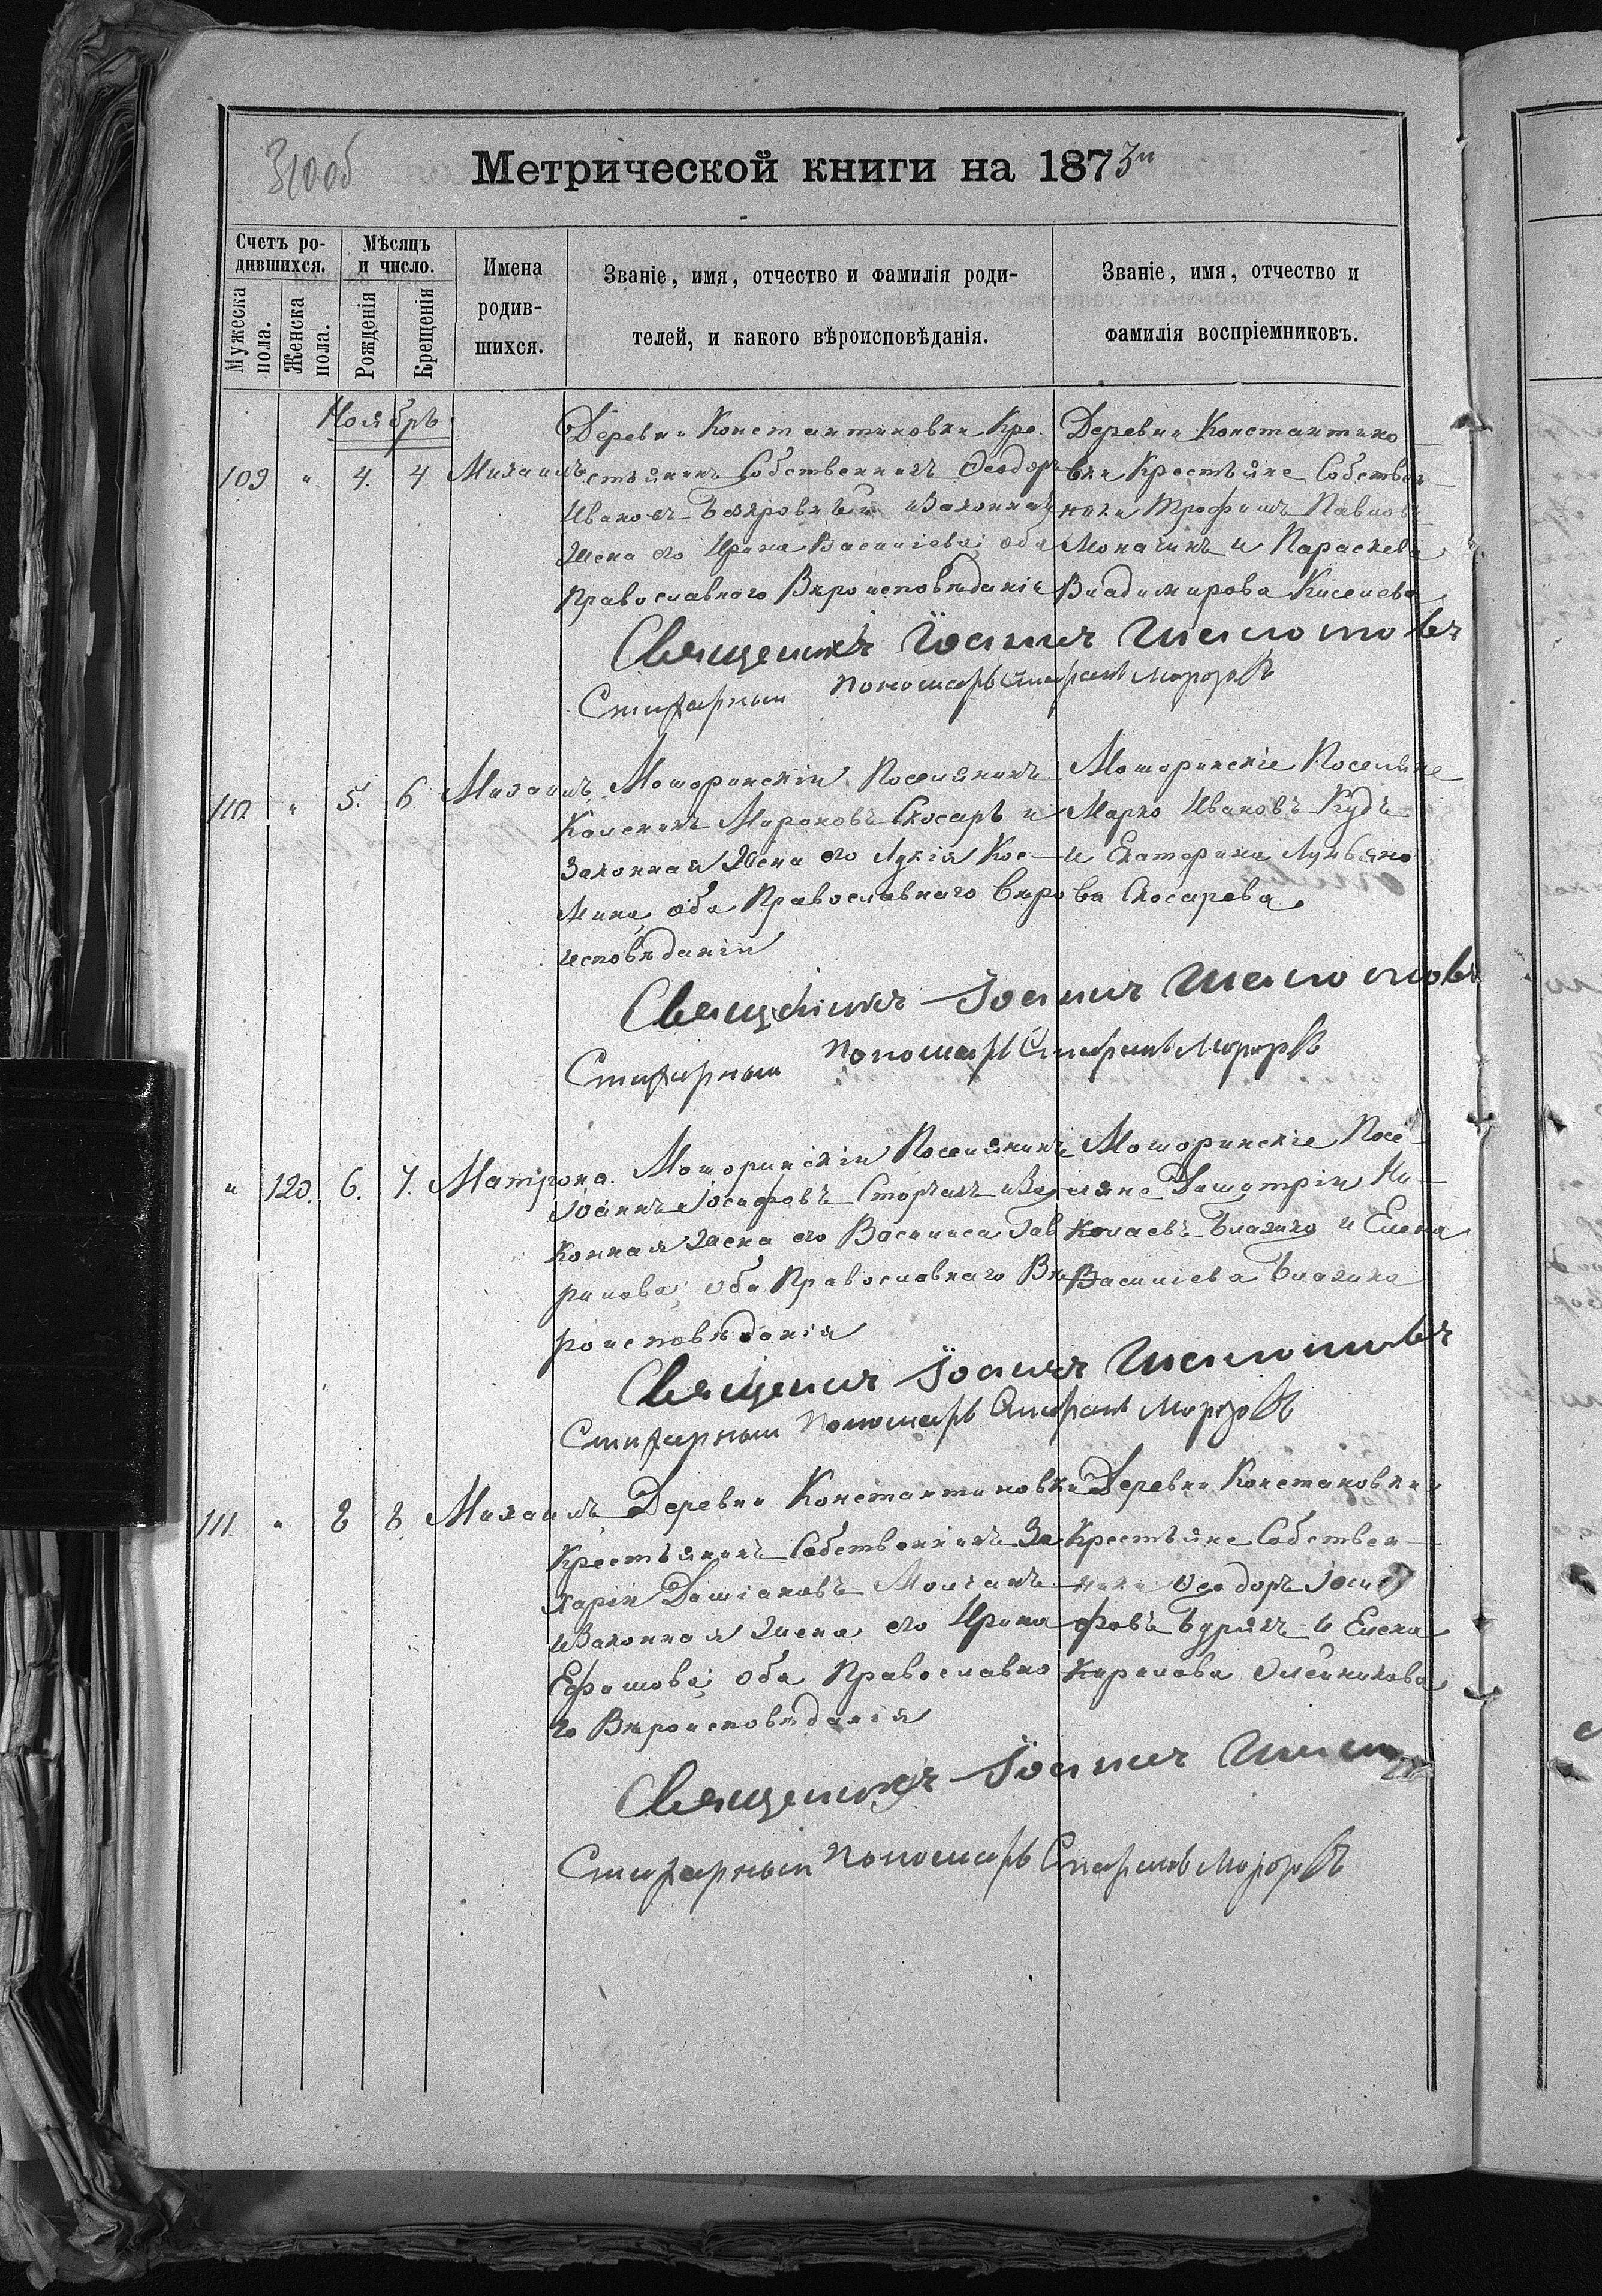 310об
Метрической книги на 1873й
Счетъ ро-
дившихся.
Мужеска пола.
Женска пола.
Мѣсяцъ
и число.
Рожденія
Крещенія
Имена
родив-
шихся.
Званіе, имя, отчество и фамилія роди-
телей, и какого вѣроисповѣданія.
Званіе, имя, отчество и
фамилія воспріемниковъ.
Ноябрь
109 " 4. 4 Михаилъ
Деревни Константиновки Кре
стьянинъ Собственникъ Ѳеодоръ
Ивановъ и Законная
Жена его Ирина Василіева; оба
Православнаго Вѣроисповѣданія
Деревни Константино
вки Крестьяне Собствен
ники Трофимъ Павловъ
и Параскева
Владимирова Киселева
Священникъ Іоаннъ
Стихарный пономарь Морозовъ
110 " 5. 6 Михаилъ
Моторинскій Поселянинъ
Мироновъ Скосарь и
Законная Жена его Лукія Кос-
мина, оба Православнаго Вѣро
исповѣданія
Моторинскіе Поселяне
Марко Ивановъ Кудь
и Екатерина Лукьяно
ва Скосарева
Священникъ Іоаннъ
Стихарный пономарь Морозовъ
" 120. 6. 7. Матрона.
Моторинскій Поселянинъ
Іоаннъ Іосифовъ и За
конная жена его Василиса Гав
рилова; оба Православнаго Вѣ
роисповѣданія
Моторинскіе Посе-
ляне Димитрій Ни-
колаевъ и Елена
Василіева
Священникъ Іоаннъ
Стихарный пономарь Морозовъ
111 " 8 8 Михаилъ
Деревни Константиновки
Крестьянинъ Собственникъ За
харій Даміановъ
и Законная жена его Ирина
Ефимова; оба Православна
го Вѣроисповѣданія
Деревни Констановки
Крестьяне Собствен-
ники Ѳеодоръ Іоси
фовъ Бурякъ и Елена
Кирилова Олейникова
Священникъ Іоаннъ
Стихарный пономарь Морозовъ